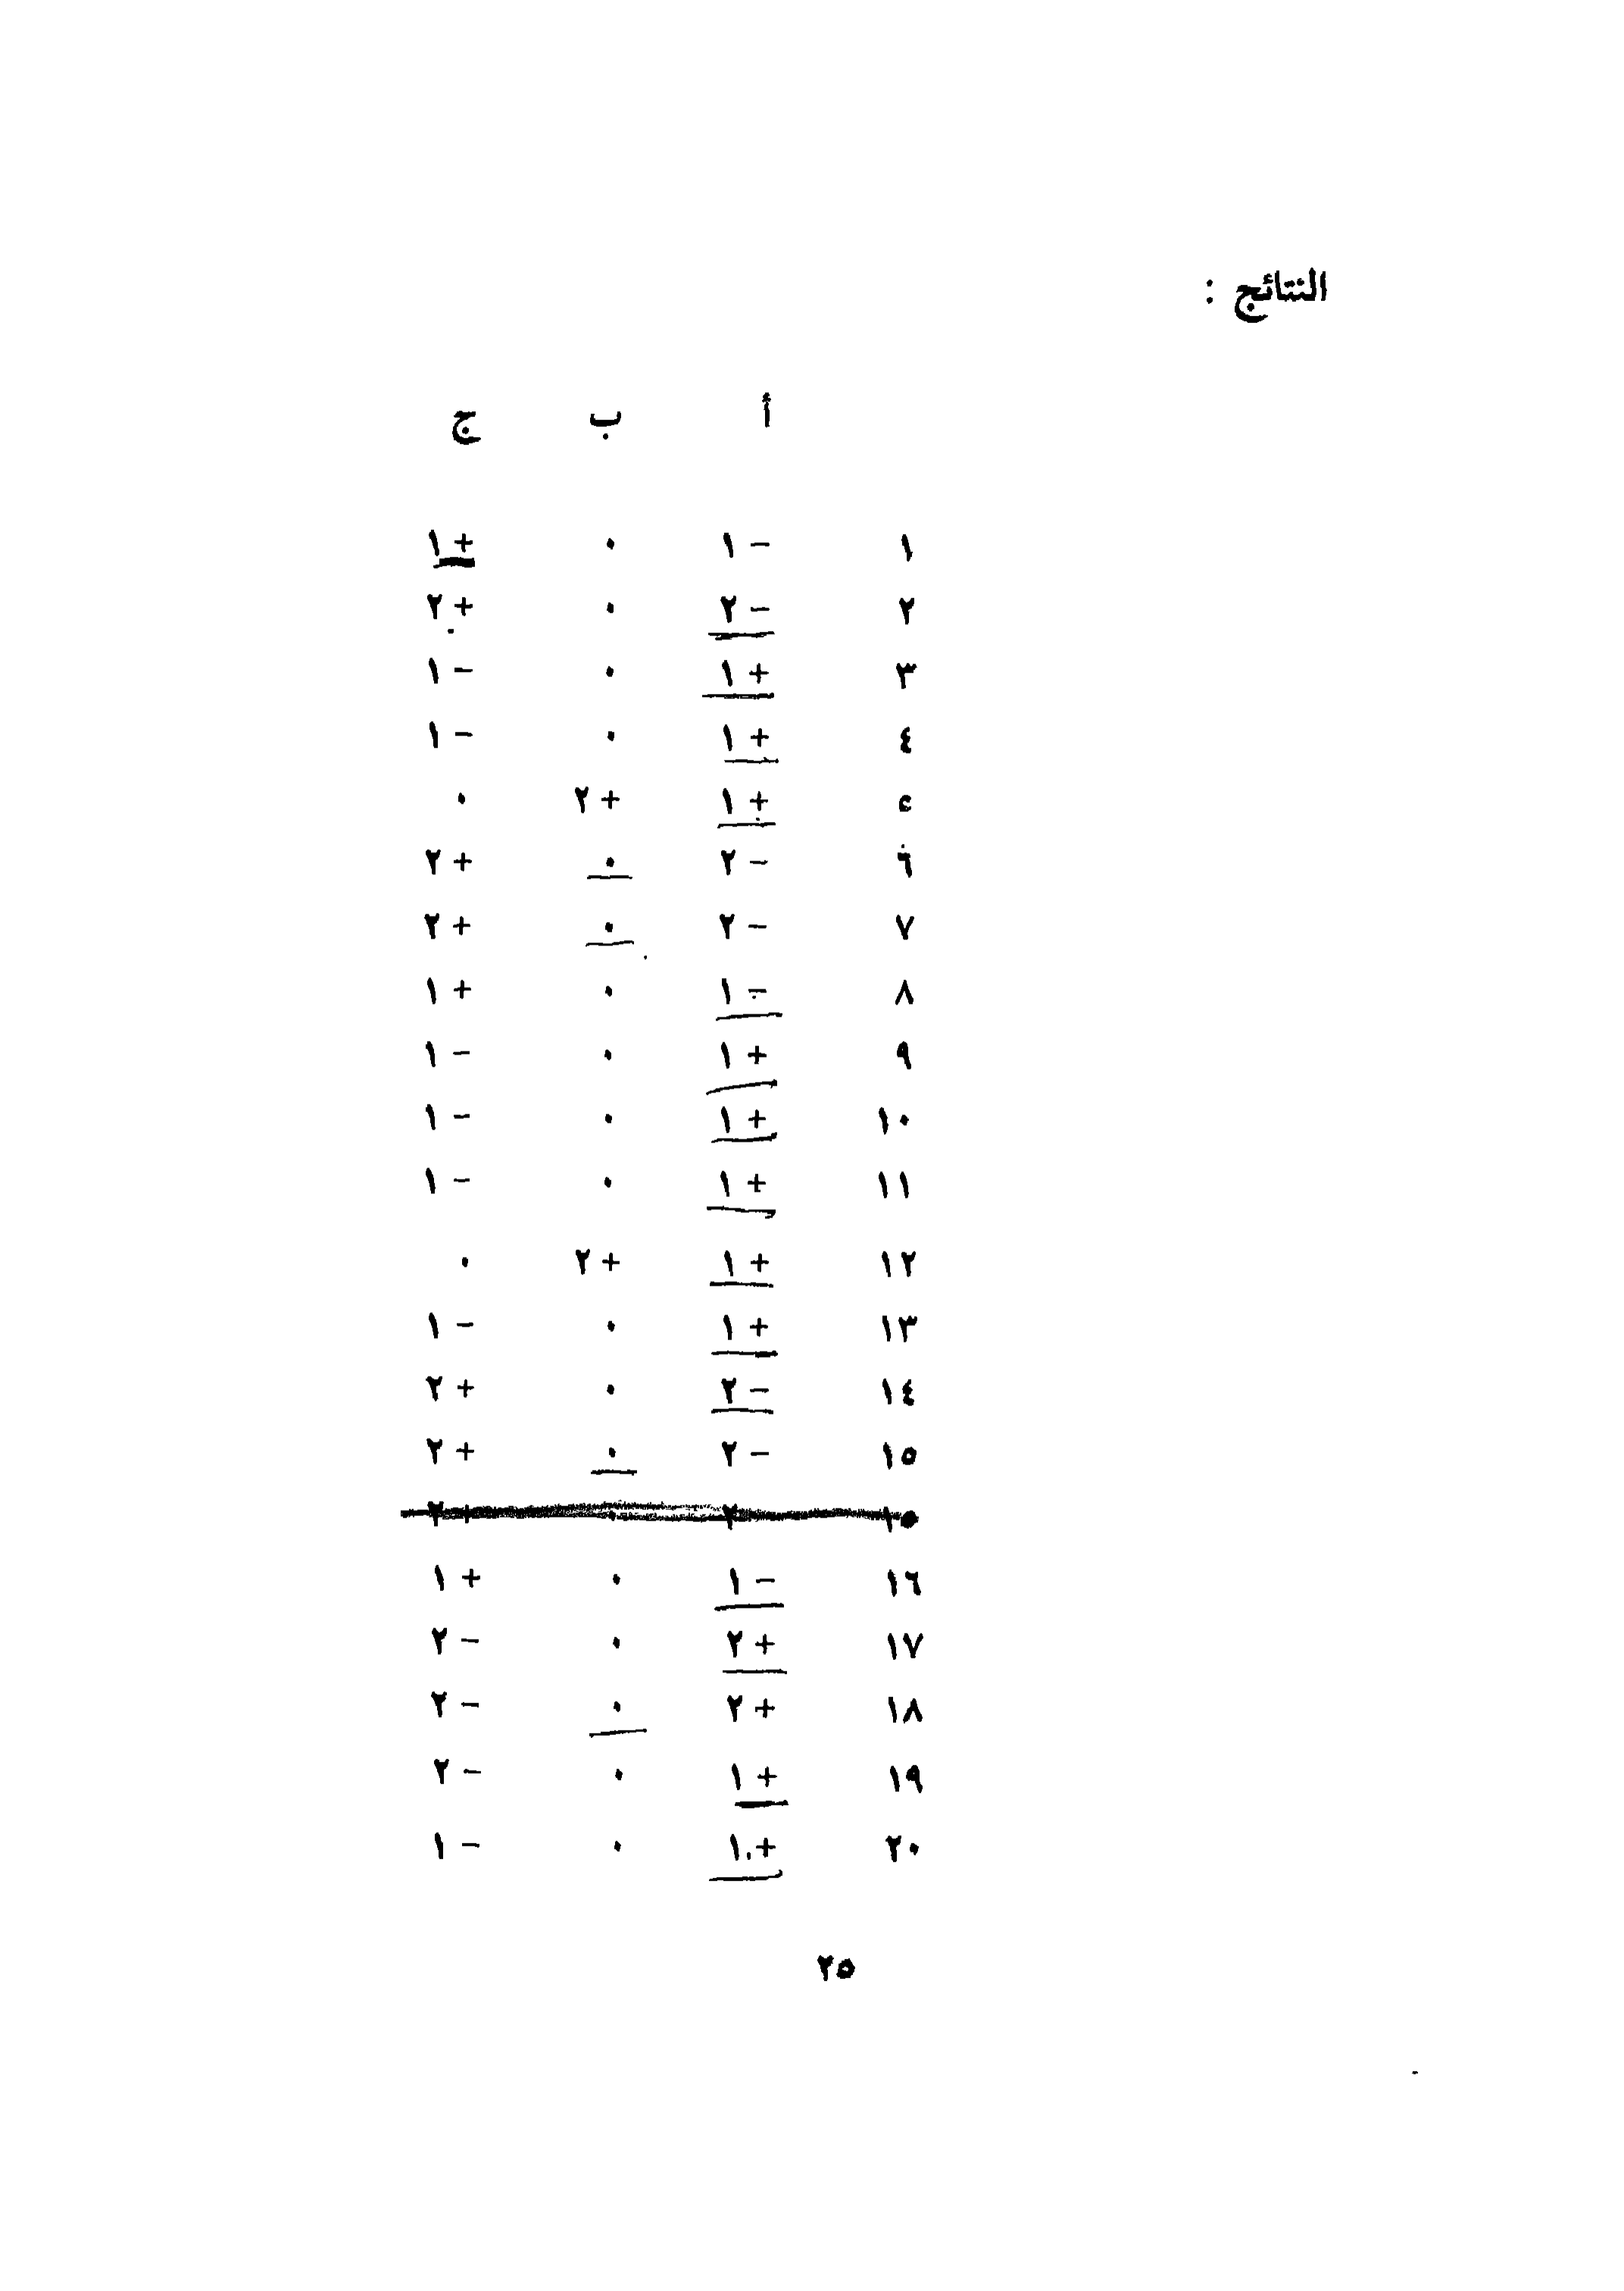 النتائج :
أ ب ج
١ - ١ ٠ + ١
٢ - ٢ ٠ + ٢
٣ + ١ ٠ - ١
٤ + ١ ٠ - ١
٥ + ١ + ٢ ٠
٦ - ٢ ٠ + ٢
٧ - ٢ ٠ + ٢
٨ - ١ ٠ + ١
٩ + ١ ٠ - ١
١٠ + ١ ٠ - ١
١١ + ١ ٠ - ١
١٢ + ١ + ٢ ٠
١٣ + ١ ٠ - ١
١٤ - ٢ ٠ + ٢
١٥ - ٢ ٠ + ٢
١٥ - ٢ ٠ + ٢
١٦ - ١ ٠ + ١
١٧ + ٢ ٠ - ٢
١٨ + ٢ ٠ - ٢
١٩ + ١ ٠ - ٢
٢٠ + ١ ٠ - ١
٢٥